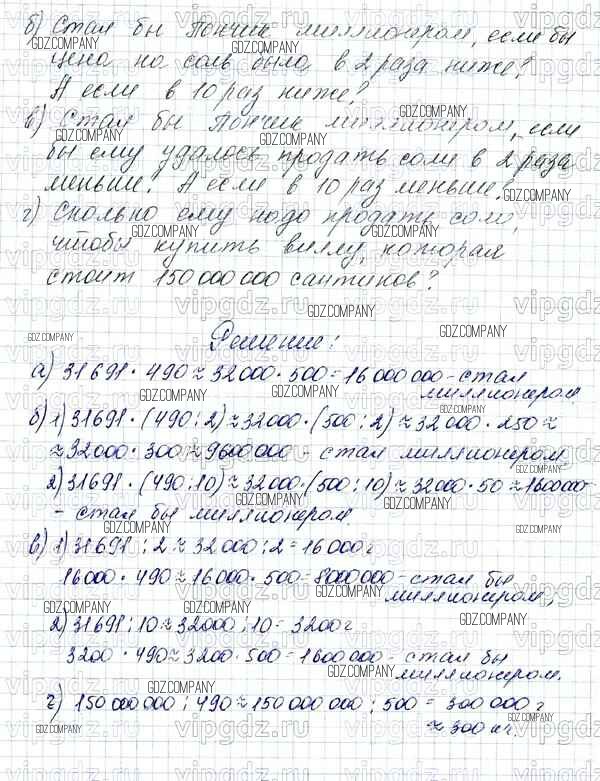 б) Стал бы Пончик миллионером, если бы
цена на соль была в 2 раза ниже?
А если в 10 раз ниже?
в) Стал бы Пончик миллионером, если
бы ему удалось продать соли в 2 раза
меньше? А если в 10 раз меньше?
г) Сколько ему надо продать соли,
чтобы купить виллу, которая
стоит 150 000 000 сантиков?
Решение:
а) 31 691 · 490 ≈ 32 000 · 500 = 16 000 000 - стал
миллионером.
б) 1) 31 691 · (490 : 2) ≈ 32 000 · (500 : 2) ≈ 32 000 · 250 ≈
≈ 32 000 · 300 ≈ 9 600 000 - стал миллионером,
2) 31 691 · (490 : 10) ≈ 32 000 · (500 : 10) ≈ 32 000 · 50 ≈ 1 600 000 -
- стал бы миллионером
в) 1) 31 691 : 2 ≈ 32 000 : 2 = 16 000 г
16 000 · 490 ≈ 16 000 · 500 = 8 000 000 - стал бы
миллионером,
2) 31 691 : 10 ≈ 32 000 : 10 = 3200 г
3200 · 490 ≈ 3200 · 500 = 1 600 000 - стал бы
миллионером.
г) 150 000 000 : 490 ≈ 150 000 000 : 500 = 300 000 г
≈ 300 кг.
GDZ.COMPANY
vipgdz.ru